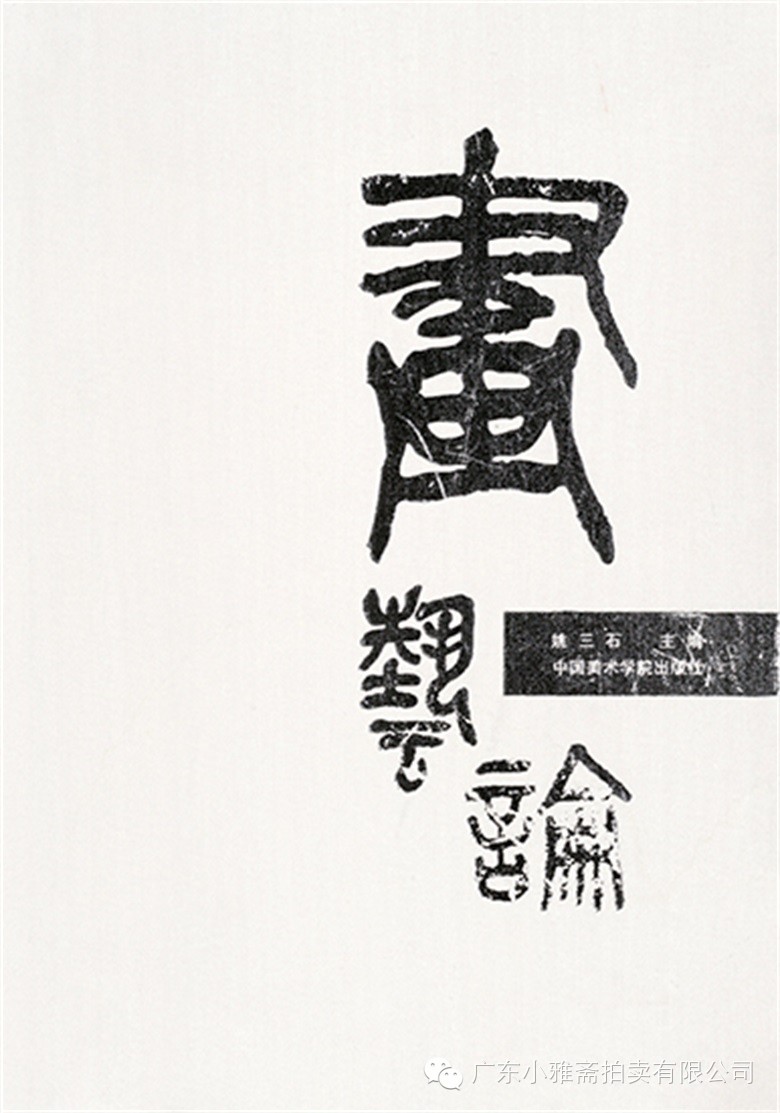 畫
藝
論
姚三石 主编
中国美术学院出版社
广东小雅斋拍卖有限公司